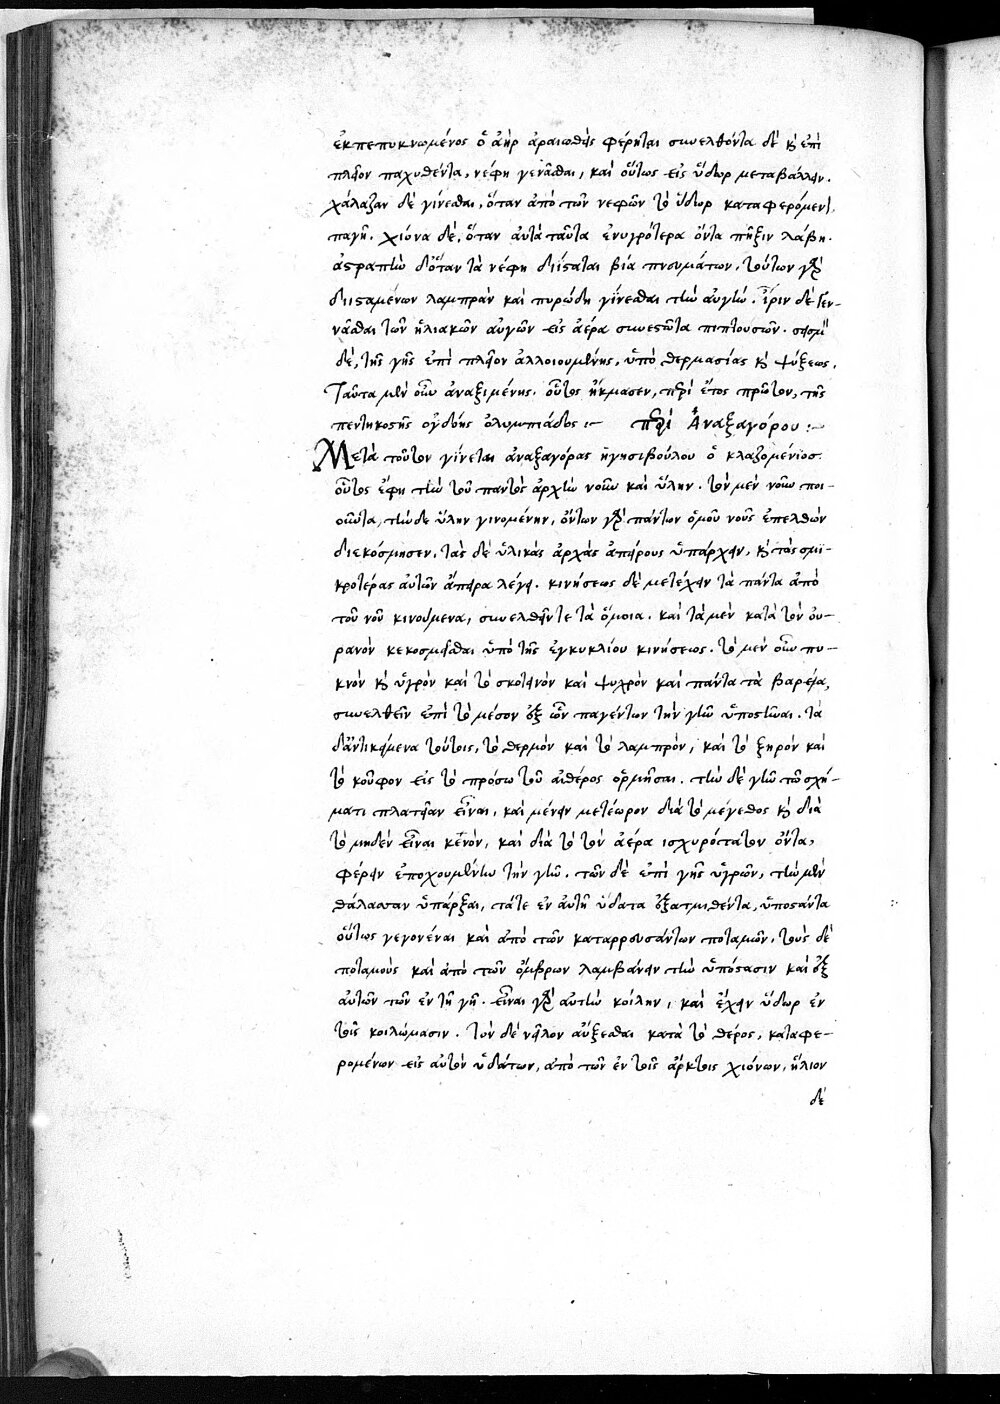 ἐκπεπυκνωμένος ὁ ἀὴρ ἀραιωθεὶς φέρηται συνελθόντα δὲ καὶ ἐπὶ
πλεῖον παχυθέντα, νέφη γενᾶσθαι, καὶ οὕτως εἰς ὕδωρ μεταβάλλειν.
χάλαζαν δὲ γίνεσθαι, ὅταν ἀπὸ τῶν νεφῶν τὸ ὕδωρ καταφερόμενον
παγῇ. χιόνα δὲ, ὅταν αὐτὰ ταῦτα ἐνυγρότερα ὄντα πῆξιν λάβῃ.
ἀστραπὴν δ' ὅταν τὰ νέφη διίσταται βίᾳ πνευμάτων, τούτων γὰρ
διισταμένων λαμπρὰν καὶ πυρώδη γίνεσθαι τὴν αὐγήν. ἶριν δὲ γεν-
νᾶσθαι τῶν ἡλιακῶν αὐγῶν εἰς ἀέρα συνεστῶτα πιπτουσῶν. σεισμὸν
δὲ, τῆς γῆς ἐπὶ πλεῖον ἀλλοιουμένης, ὑπὸ θερμασίας καὶ ψύξεως.
Ταῦτα μὲν οὖν ἀναξιμένης. οὗτος ἤκμασεν, περὶ ἔτος πρῶτον, τῆς
πεντηκοστῆς ὀγδόης ὀλυμπιάδος :~ περὶ Ἀναξαγόρου :~
Μετὰ τοῦτον γίνεται ἀναξαγόρας ἡγησιβούλου ὁ κλαζομένιος.
οὗτος ἔφη τὴν τοῦ παντὸς ἀρχὴν νοῦν καὶ ὕλην. τὸν μὲν νοῦν ποι-
οῦντα, τὴν δὲ ὕλην γινομένην, ὄντων γὰρ πάντων ὁμοῦ νοῦς ἐπελθὼν
διεκόσμησεν, τὰς δὲ ὑλικὰς ἀρχὰς ἀπείρους ὑπάρχειν, καὶ τὰς σμι-
κροτέρας αὐτῶν ἄπειρα λέγει. κινήσεως δὲ μετέχειν τὰ πάντα ἀπὸ
τοῦ νοῦ κινούμενα, συνελθεῖν τε τὰ ὅμοια. καὶ τὰ μὲν κατὰ τὸν οὐ-
ρανὸν κεκοσμεῖσθαι ὑπὸ τῆς ἐγκυκλίου κινήσεως. τὸ μὲν οὖν πυ-
κνὸν καὶ ὑγρὸν καὶ τὸ σκοτεινὸν καὶ ψυχρὸν καὶ πάντα τὰ βαρεῖα,
συνελθεῖν ἐπὶ τὸ μέσον ἐξ ὧν παγέντων τὴν γῆν ὑποστῆναι. τὰ
δ' ἀντικείμενα τούτοις, τὸ θερμὸν καὶ τὸ λαμπρὸν, καὶ τὸ ξηρὸν καὶ
τὸ κοῦφον εἰς τὸ πρόσω τοῦ αἰθέρος ὁρμῆσαι. τὴν δὲ γῆν τῷ σχή-
ματι πλατεῖαν εἶναι, καὶ μένειν μετέωρον διὰ τὸ μέγεθος καὶ διὰ
τὸ μηδὲν εἶναι κενὸν, καὶ διὰ τὸ τὸν ἀέρα ἰσχυρότατον ὄντα,
φέρειν ἐποχουμένην τὴν γῆν. τῶν δὲ ἐπὶ γῆς ὑγρῶν, τὴν μὲν
θάλασσαν ὑπάρξαι, τά τε ἐν αὐτῇ ὕδατα ἐξατμισθέντα, ὑποστάντα
οὕτως γεγονέναι καὶ ἀπὸ τῶν καταρρευσάντων ποταμῶν. τοὺς δὲ
ποταμοὺς καὶ ἀπὸ τῶν ὄμβρων λαμβάνειν τὴν ὑπόστασιν καὶ ἐξ
αὐτῶν τῶν ἐν τῇ γῇ. εἶναι γὰρ αὐτὴν κοίλην, καὶ ἔχειν ὕδωρ ἐν
τοῖς κοιλώμασιν. τὸν δὲ νεῖλον αὔξεσθαι κατὰ τὸ θέρος, καταφε-
ρομένων εἰς αὐτὸν ὑδάτων, ἀπὸ τῶν ἐν τοῖς ἄρκτοις χιόνων, ἥλιον
δὲ